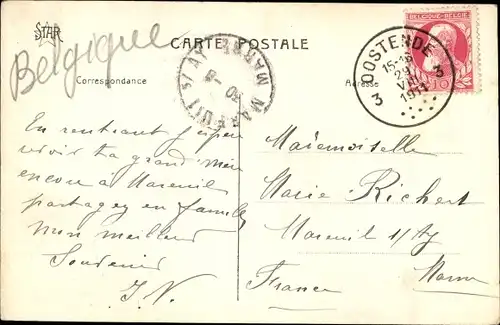 STAR
Belgique
CARTE POSTALE
Correspondance
Adresse
BELGIQUE-BELGIË
10
OOSTENDE
15-16
29
VII
1911
3 3
MAREUIL S/ AY
30
En rentrant j'espère
revoir ta grand'mère
encore à Mareuil
partagez en famille
mon meilleur
Souvenir
J. N.
Mademoiselle
Marie Richert
Mareuil s/ Ay
Marne
France